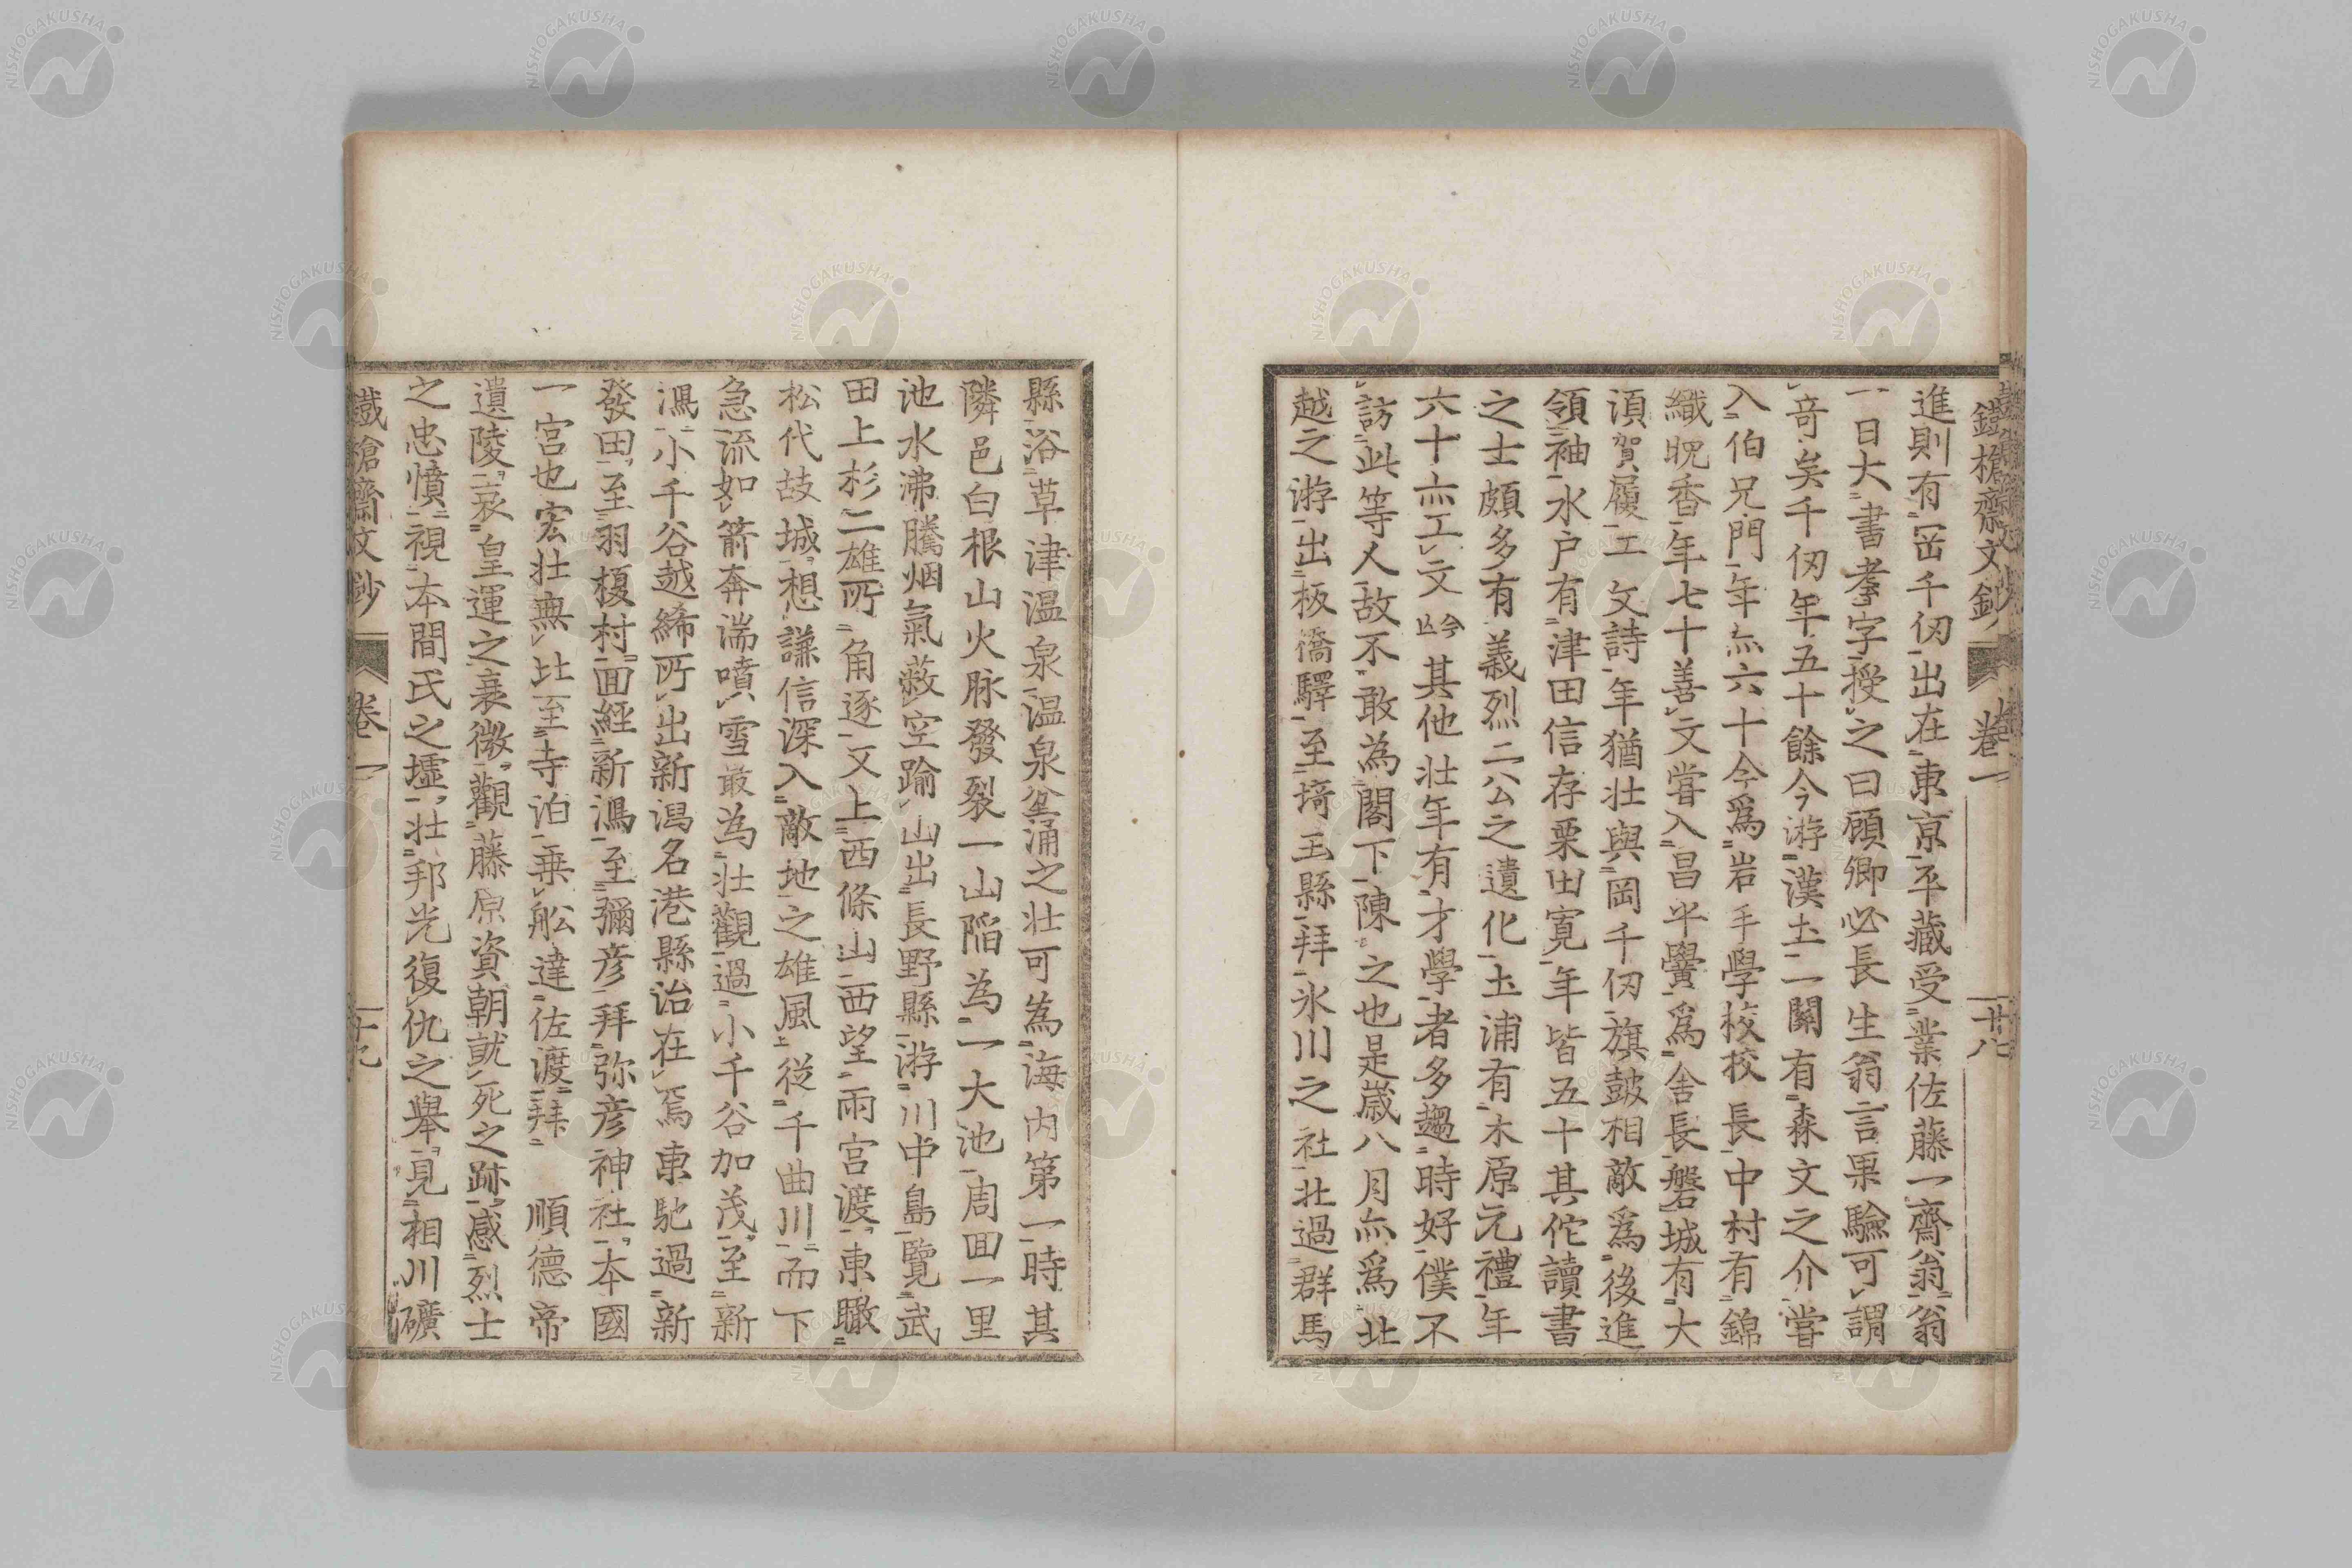 鐵槍齋文鈔 卷一 十八
進則有岡千仞出在東京平藏受業佐藤一齋翁翁
一日大書孝字授之曰顧卿必長生翁言果驗可謂
奇矣千仞年五十餘今游漢土二關有森文之介嘗
入伯兄門年亦六十今爲岩手學校校長中村有錦
織晩香年七十善文嘗入昌平黌爲舍長磐城有大
須賀履工文詩年猶壯與岡千仞旗鼓相敵爲後進
領袖水戶有津田信存栗田寛年皆五十其佗讀書
之士頗多有義烈二公之遺化土浦有木原元禮年
六十亦工文 其他壯年有才學者多趨時好僕不
訪此等人故不敢為閣下陳之也是歲八月亦爲北
越之游出板橋驛至埼玉縣拜氷川之社北過群馬
縣浴草津温泉温泉坌涌之壯可為海内第一時其
隣邑白根山火脉發裂一山陷為一大池周回一里
池水沸騰烟氣蔽空踰山出長野縣游川中島覽武
田上杉二雄所角逐又上西條山西望雨宮渡東瞰
松代故城想謙信深入敵地之雄風從千曲川而下
急流如箭奔湍噴雪最為壯觀過小千谷加茂至新
潟小千谷越絺所出新潟名港縣治在焉東馳過新
發田至羽榎村面經新潟至彌彦拜弥彦神社本國
一宮也宏壯無比至寺泊乗舩達佐渡拜 順德帝
遺陵哀皇運之衰微觀藤原資朝就死之跡感烈士
之忠憤視本間氏之墟壯邦光復仇之舉見相川礦
鐵槍齋文鈔 卷一 十九
NISHOGAKUSHA